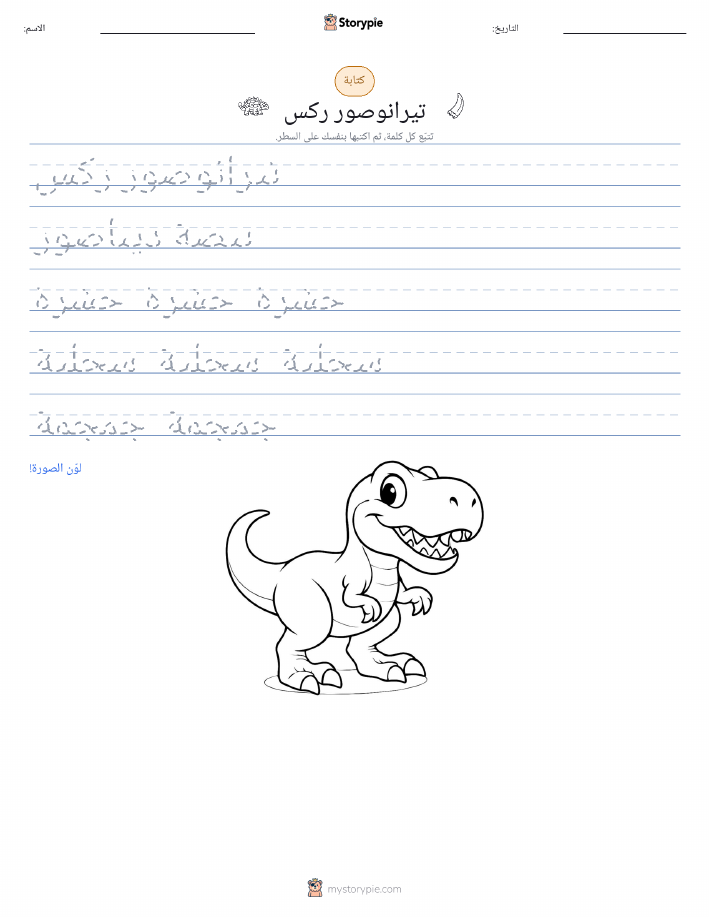 الاسم:
Storypie
التاريخ:
كتابة
تيرانوصور ركس
تتبّع كل كلمة، ثم اكتبها بنفسك على السطر.
تيرانوصور ركس
بيضة ديناصور
حشرة حشرة حشرة
سحلية سحلية سحلية
جمجمة جمجمة
لوّن الصورة!
mystorypie.com